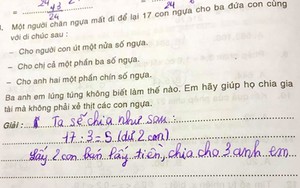 1. Một người chăn ngựa mất đi để lại 17 con ngựa cho ba đứa con cùng
với di chúc sau :
– Cho người con út một nửa số ngựa.
– Cho chị cả một phần ba số ngựa.
– Cho anh hai một phần chín số ngựa.
Ba anh em lúng túng không biết làm thế nào. Em hãy giúp họ chia gia
tài mà không phải xẻ thịt các con ngựa.
Giải : Ta sẽ chia như sau :
17 : 3 = 5 (dư 2 con)
Lấy 2 con bán lấy tiền, chia cho 3 anh em